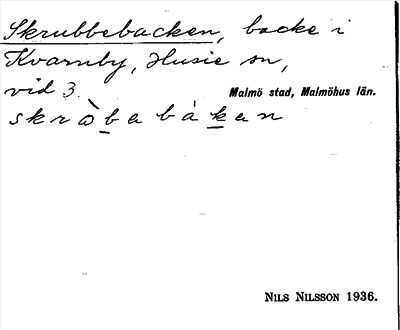 Skrubbebacken, backe i
Kvarnby, Husie sn,
vid 3.
Malmö stad, Malmöhus län.
skròbebàken
NILS NILSSON 1936.